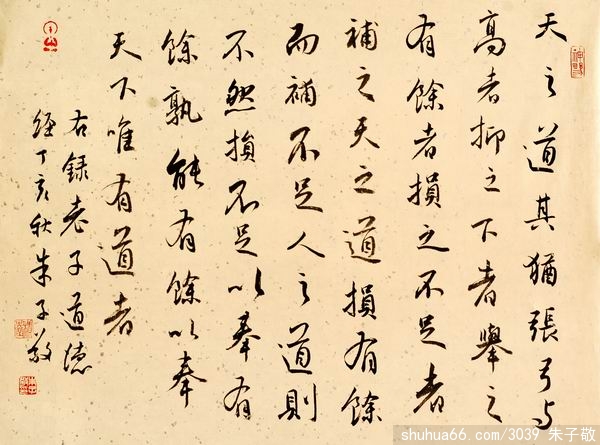 天之道其猶張弓與
高者抑之下者舉之
有餘者損之不足者
補之天之道損有餘
而補不足人之道則
不然損不足以奉有
餘孰能有餘以奉
天下唯有道者
右錄老子道德
經丁亥秋朱子敬
shuhua66.com/3039 朱子敬